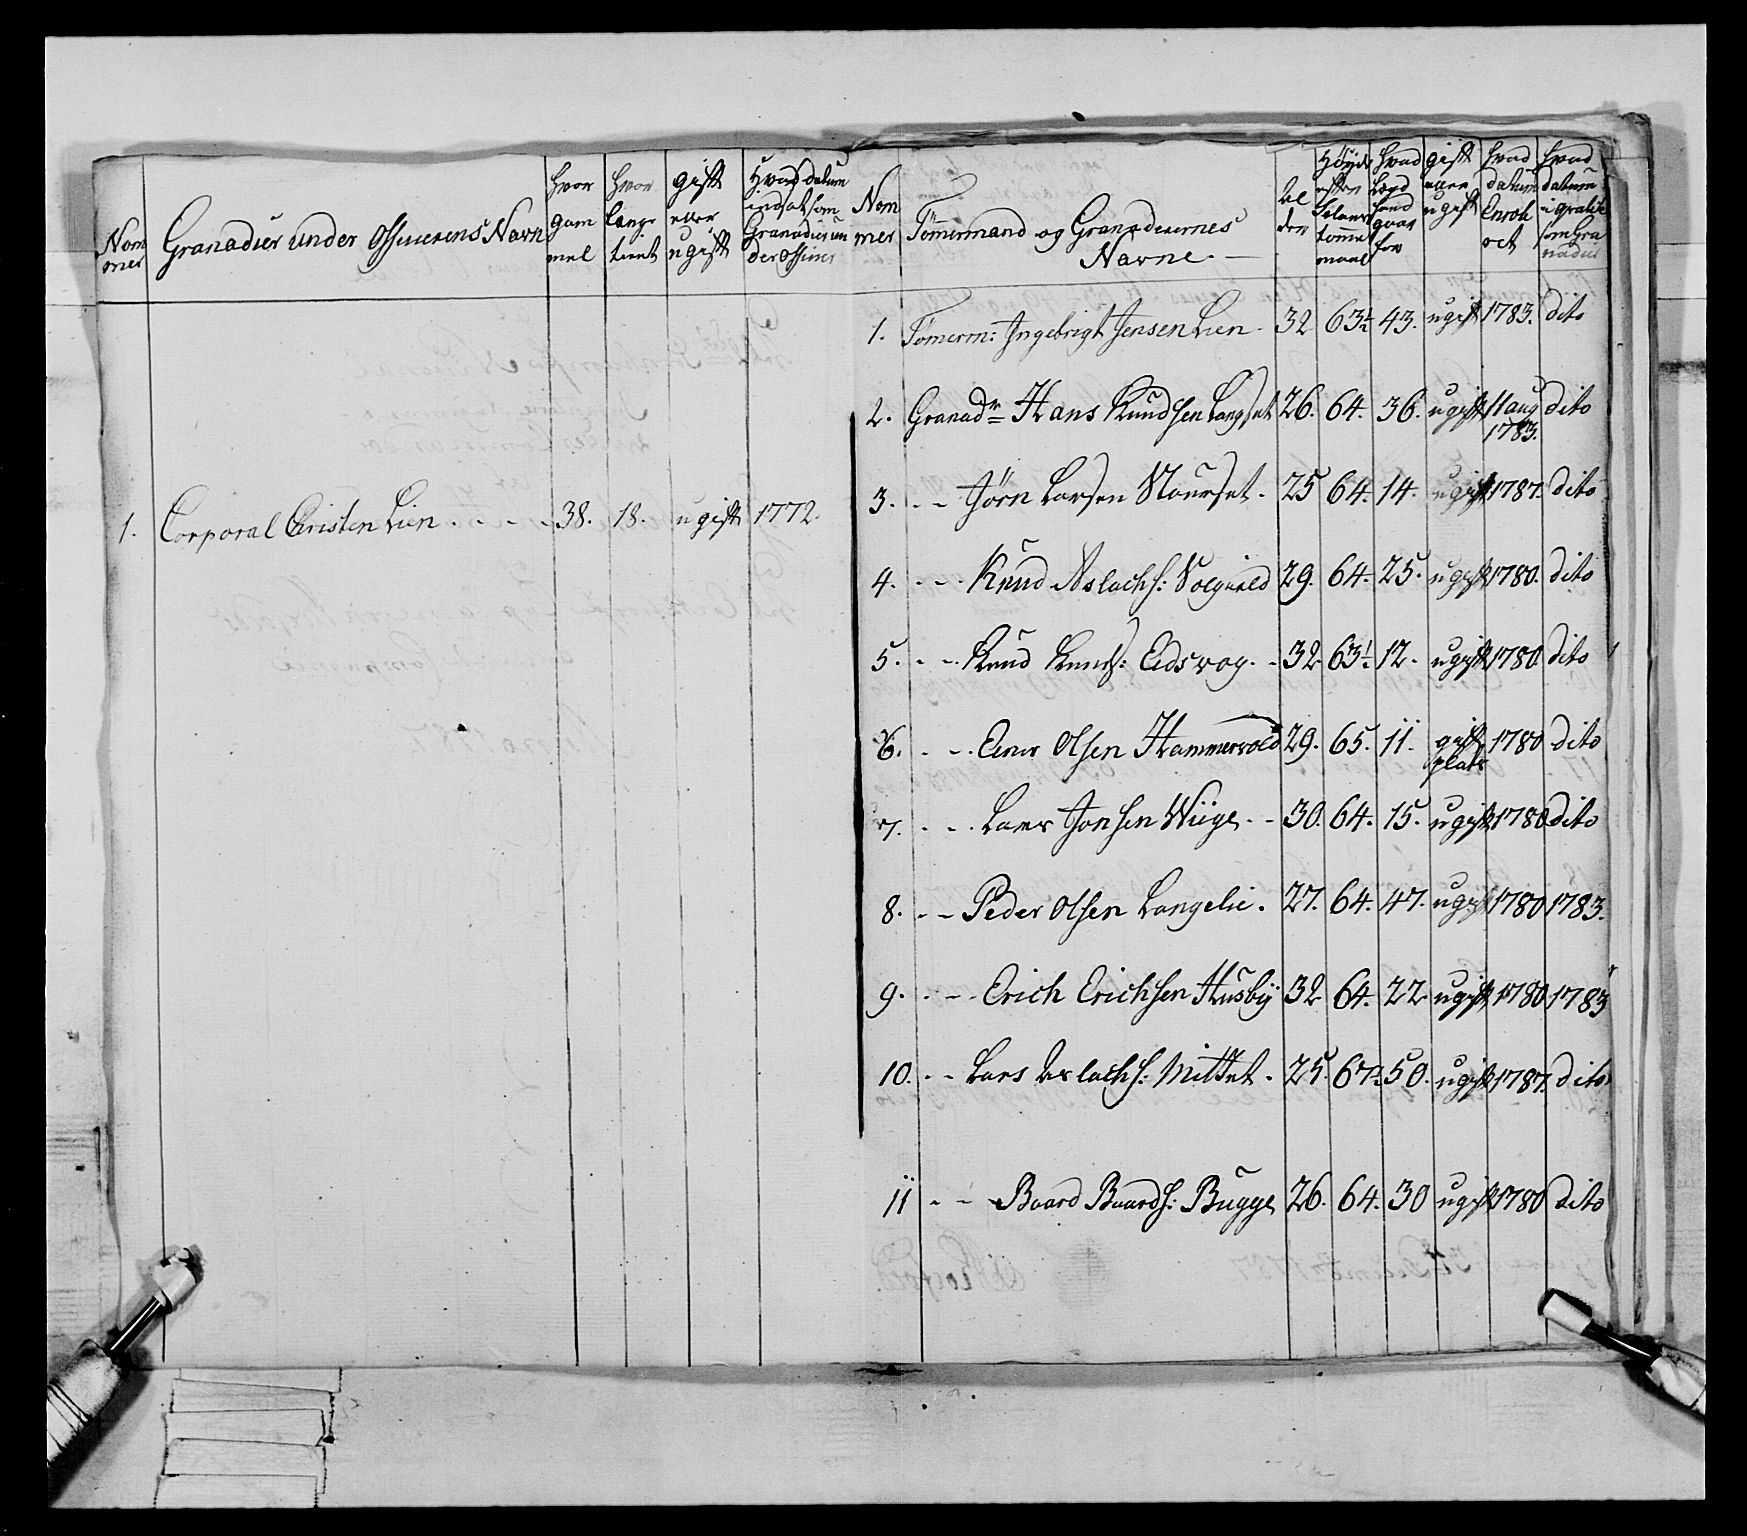 Nom
mer
Granadier under Officierens Navn
hvor
gam
mel
hvor
længe
tient
gift
eller
ugift
Hvad datum
indsat som
Granadier un
der Officier
1. Corporal Christen Lien . - - - 38. 18. ugift 1772.
Nom
mer
Tømermand og Granaderernes
Navne. —
al
der
Høyde
efter
tomme
maal
hvad
Lægd
hand
gaar
for
gift
eller
ugift
hvad
datum
Enrol
eret
hvad
datum
som Gra
nadier
1. Tømerm: Ingebrigt Jensen Lien - 32 63½ 43. ugift 1783. dito
2. Granadr Hans Knudsen Langset 26. 64. 36. ugift 11 aug dito
1783.
3. - - Jørn Larsen Nourset. 25 64. 14. ugift 1787. dito
4. - - Knud Aslachs: Solgield 29. 64. 25. ugift 1780. dito
5. - - Knud Knuds: Eidsvog. - 32 63½ 12. ugift 1780. dito
6. - - Einer Olsen Hammervold 29. 65. 11. gift 1780 dito
plads
7. - - Lars Jonsen Wiige - - 30. 64. 15. ugift 1780 dito
8. - - Peder Olsen Langelie. 27. 64. 47. ugift 1780 1783.
9. - - Erich Erichsen Husbÿ 32 64. 22 ugift 1780 1783
10. - - Lars Aslachs: Mittet. 25. 67½ 50. ugift 1787. dito
11 - - Baard Baards: Bugge 26. 64. 30 ugift 1780 dito